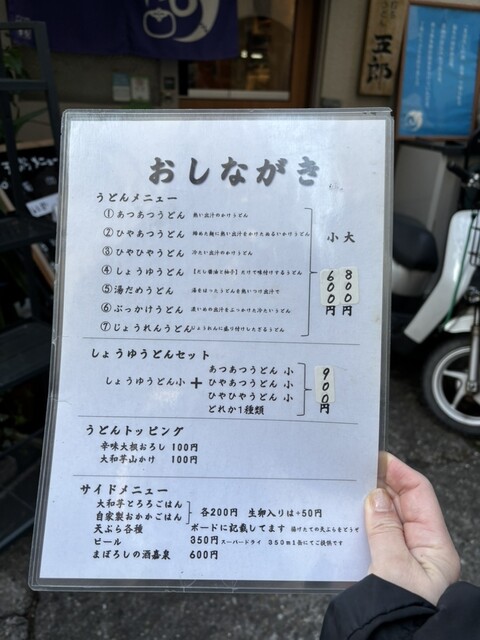 五郎
おしながき
うどんメニュー
小 大
①あつあつうどん 熱い出汁のかけうどん
②ひやあつうどん 締めた麺に熱い出汁をかけたぬるいかけうどん
③ひやひやうどん 冷たい出汁のかけうどん
④しょうゆうどん 【だし醤油と柚子】だけで味付けするうどん
⑤湯だめうどん 湯をはったうどんを熱いつけ出汁で
⑥ぶっかけうどん 濃いめの出汁をぶっかけた冷たいうどん
⑦じょうれんうどん じょうれんに盛り付けしたざるうどん
600円 800円
しょうゆうどんセット
しょうゆうどん小 + あつあつうどん 小
ひやあつうどん 小
ひやひやうどん 小
どれか1種類
900円
うどんトッピング
辛味大根おろし 100円
大和芋山かけ 100円
サイドメニュー
大和芋とろろごはん
自家製おかかごはん 各200円 生卵入りは+50円
天ぷら各種 ボードに記載してます 揚げたての天ぷらをどうぞ
ビール 350円 スーパードライ 350ml缶にてご提供です
まぼろしの酒嘉泉 600円